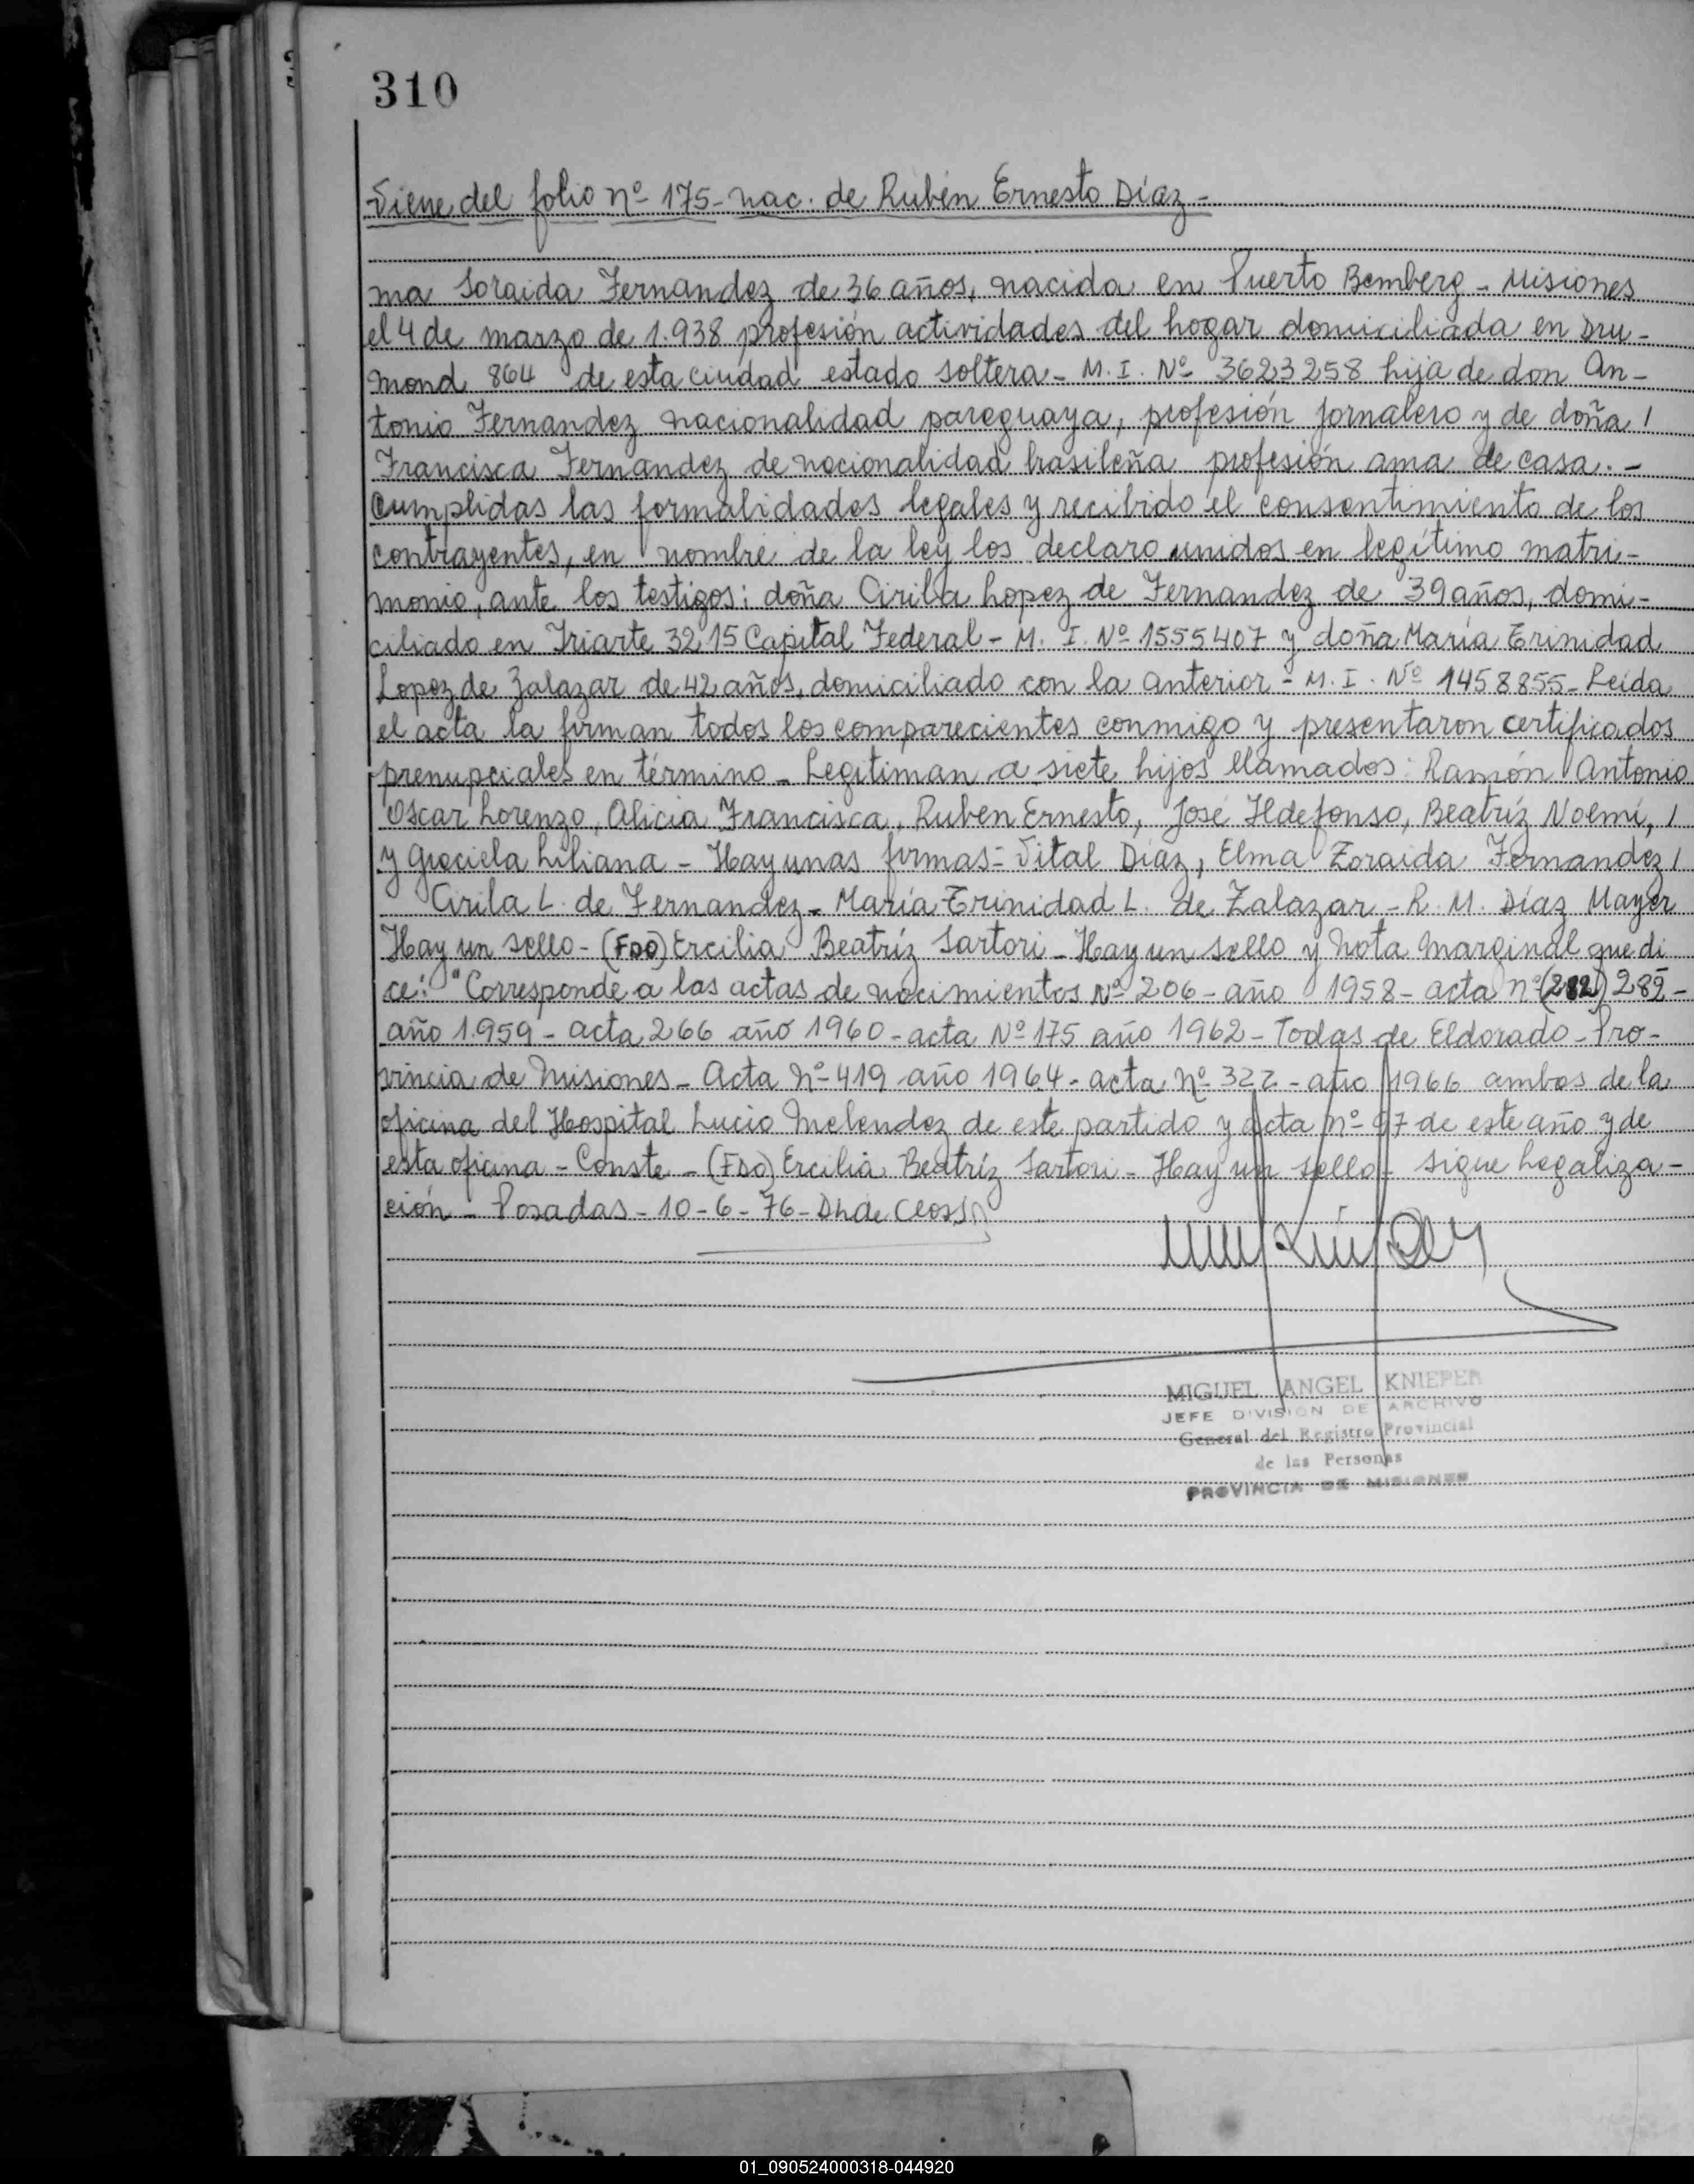 310
Viene del folio nº 175- nac. de Rubén Ernesto Díaz-
ma Soraida Fernandez de 36 años, nacida en Puerto Bemberg - Misiones
el 4 de marzo de 1.938 profesión actividades del hogar domiciliada en Dru-
mond 864 de esta ciudad estado soltera - M. I. Nº 3623258 hija de don An-
tonio Fernandez nacionalidad pareguaya, profesión jornalero y de doña /
Francisca Fernandez de nacionalidad brasileña profesión ama de casa. -
Cumplidas las formalidades legales y recibido el consentimiento de los
contrayentes, en nombre de la ley los declaro unidos en legítimo matri-
monio, ante los testigos: doña Cirila Lopez de Fernandez de 39 años, domi-
ciliado en Iriarte 3215 Capital Federal - M. I. Nº 1555407 y doña María Trinidad
Lopez de Zalazar de 42 años, domiciliado con la anterior - M. I. Nº 1458855 - Leída
el acta la firman todos los comparecientes conmigo y presentaron certificados
prenupciales en término - Legitiman a siete hijos llamados: Ramón Antonio
Oscar Lorenzo, Alicia Francisca, Ruben Ernesto, José Ildefonso, Beatríz Noemí, /
y Graciela Liliana - Hay unas firmas - Vital Díaz, Elma Zoraida Fernandez /
Cirila L. de Fernandez - María Trinidad L. de Zalazar - R. M. Díaz Mayer
Hay un sello - (FDO) Ercilia Beatríz Sartori - Hay un sello y nota marginal que di
ce: "Corresponde a las actas de nacimientos Nº 206 - año 1958 - acta nº (282) 282 -
año 1.959 - acta 266 año 1960 - acta Nº 175 año 1962 - Todas de Eldorado - Pro-
vincia de Misiones - Acta Nº 419 año 1964 - acta nº 322 - año 1966 ambas de la
oficina del Hospital Lucio Melendez de este partido y acta nº 97 de este año y de
esta oficina - Conste - (FDO) Ercilia Beatríz Sartori - Hay un sello - sigue Legaliza-
ción - Posadas - 10-6-76 -
MIGUEL ANGEL KNIEPER
JEFE DIVISION DE ARCHIVO
General del Registro Provincial
de las Personas
PROVINCIA DE MISIONES
01_090524000318-044920